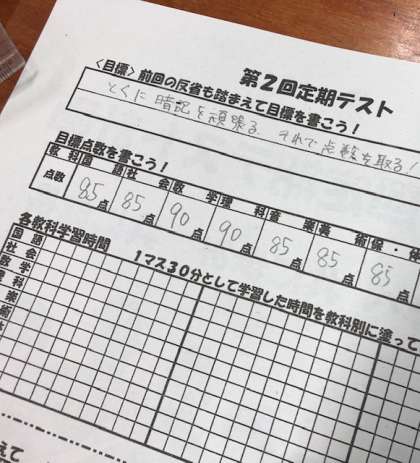 第2回定期テスト
〈目標〉前回の反省も踏まえて目標を書こう！
とくに暗記を頑張る. それで点数を取る!
目標点数を書こう！
教科 国語 社会 数学 理科 音楽 美術 保・体
点数 85点 85点 90点 90点 85点 85点 85点
各教科学習時間
1マス30分として学習した時間を教科別に塗って
国語
社会
数学
理科
楽
術